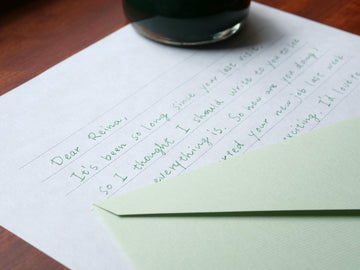 Dear Reina,
It's been so long since your last visit,
so I thought I should write to you to see
everything is. So how are you doing?
rted your new job last week
iting. I'd love